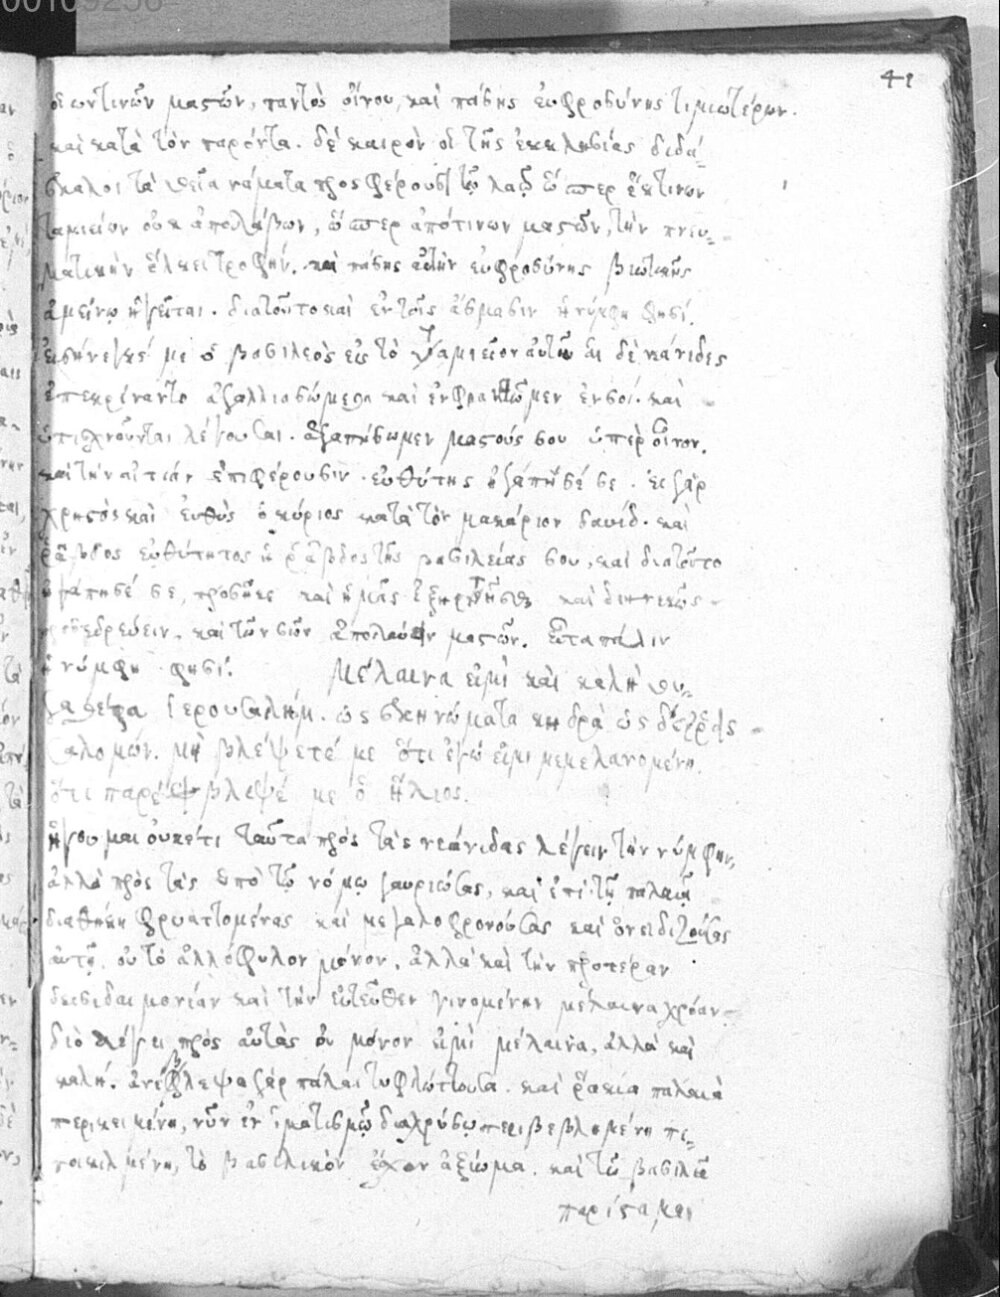 00109256
41
δεωντινῶν μαστῶν, παντὸς οἴνου, καὶ πάσης εὐφροσύνης τιμιωτέρων.
καὶ κατὰ τὸν παρόντα δὲ καιρὸν οἱ τῆς ἐκκλησίας διδά-
σκαλοι τὰ θεῖα νάματα προσφέρουσι τῷ λαῷ ὥσπερ ἔκ τινων
ταμιείων, ὥσπερ ἀπό τινων μαστῶν, τὴν πνευ-
ματικὴν ἕλκει τροφήν. καὶ πάσης αὐτὴν εὐφροσύνης βιωτικῆς
ἀμείνω ἡγεῖται. διατοῦτο καὶ ἐν τοῖς ἄσμασιν ἡ νύμφη φησί.
εἰσήνεγκέ με ὁ βασιλεὺς εἰς τὸ ταμιεῖον αὐτοῦ αἱ δὲ νεάνιδες
ἐπεκρίναντο ἀγαλλιασώμεθα καὶ εὐφρανθῶμεν ἐν σοί. καὶ
ὑπισχνοῦνται λέγουσαι. ἀγαπήσωμεν μαστούς σου ὑπὲρ οἶνον.
καὶ τὴν αἰτίαν ἐπιφέρουσιν. εὐθύτης ἠγάπησέ σε. εἰ γὰρ
χρηστὸς καὶ εὐθὺς ὁ κύριος κατὰ τὸν μακάριον δαυίδ. καὶ
ῥάβδος εὐθύτητος ἡ ῥάβδος τῆς βασιλείας σου, καὶ διατοῦτο
ἠγάπησέ σε, καὶ ἡμᾶς καὶ διηνεκῶς
προσεδρεύειν, καὶ τῶν σῶν ἀπολαύειν μαστῶν. εἶτα πάλιν
ἡ νύμφη φησί. Μέλαινα εἰμὶ καὶ καλὴ θυ-
γατέρα Ἱερουσαλήμ. ὡς σκηνώματα κηδρὰ ὡς δέρρεις
σαλομών. Μὴ βλέψετέ με ὅτι ἐγώ εἰμι μεμελανομένη.
ὅτι παρέβλεψέ με ὁ ἥλιος.
ἡγοῦμαι οὐκέτι ταῦτα πρὸς τὰς νεάνιδας λέγειν τὴν νύμφην,
ἀλλὰ πρὸς τὰς ἐπὶ τῷ νόμῳ γαυριώσας, καὶ ἐπὶ τῇ παλαιᾷ
διαθήκῃ φρυαττομένας καὶ μεγαλοφρονούσας καὶ ὀνειδιζούσας
αὐτῇ. οὐ τὸ ἀλλόφυλον μόνον, ἀλλὰ καὶ τὴν προτέραν
δεισιδαιμονίαν καὶ τὴν ἐντεῦθεν γινομένην μέλαινα χρόαν
διὸ λέγει πρὸς αὐτὰς οὐ μόνον εἰμὶ μέλαινα, ἀλλὰ καὶ
καλή. ἀνέβλεψα γὰρ πάλαι τυφλώττουσα. καὶ ῥάκια παλαιὰ
περικειμένη, νῦν ἐν ἱματισμῷ διαχρύσῳ περιβεβλημένη πε-
ποικιλμένη, τὸ βασιλικὸν ἔχων ἀξίωμα. καὶ τῷ βασιλεῖ
παρίσταμαι